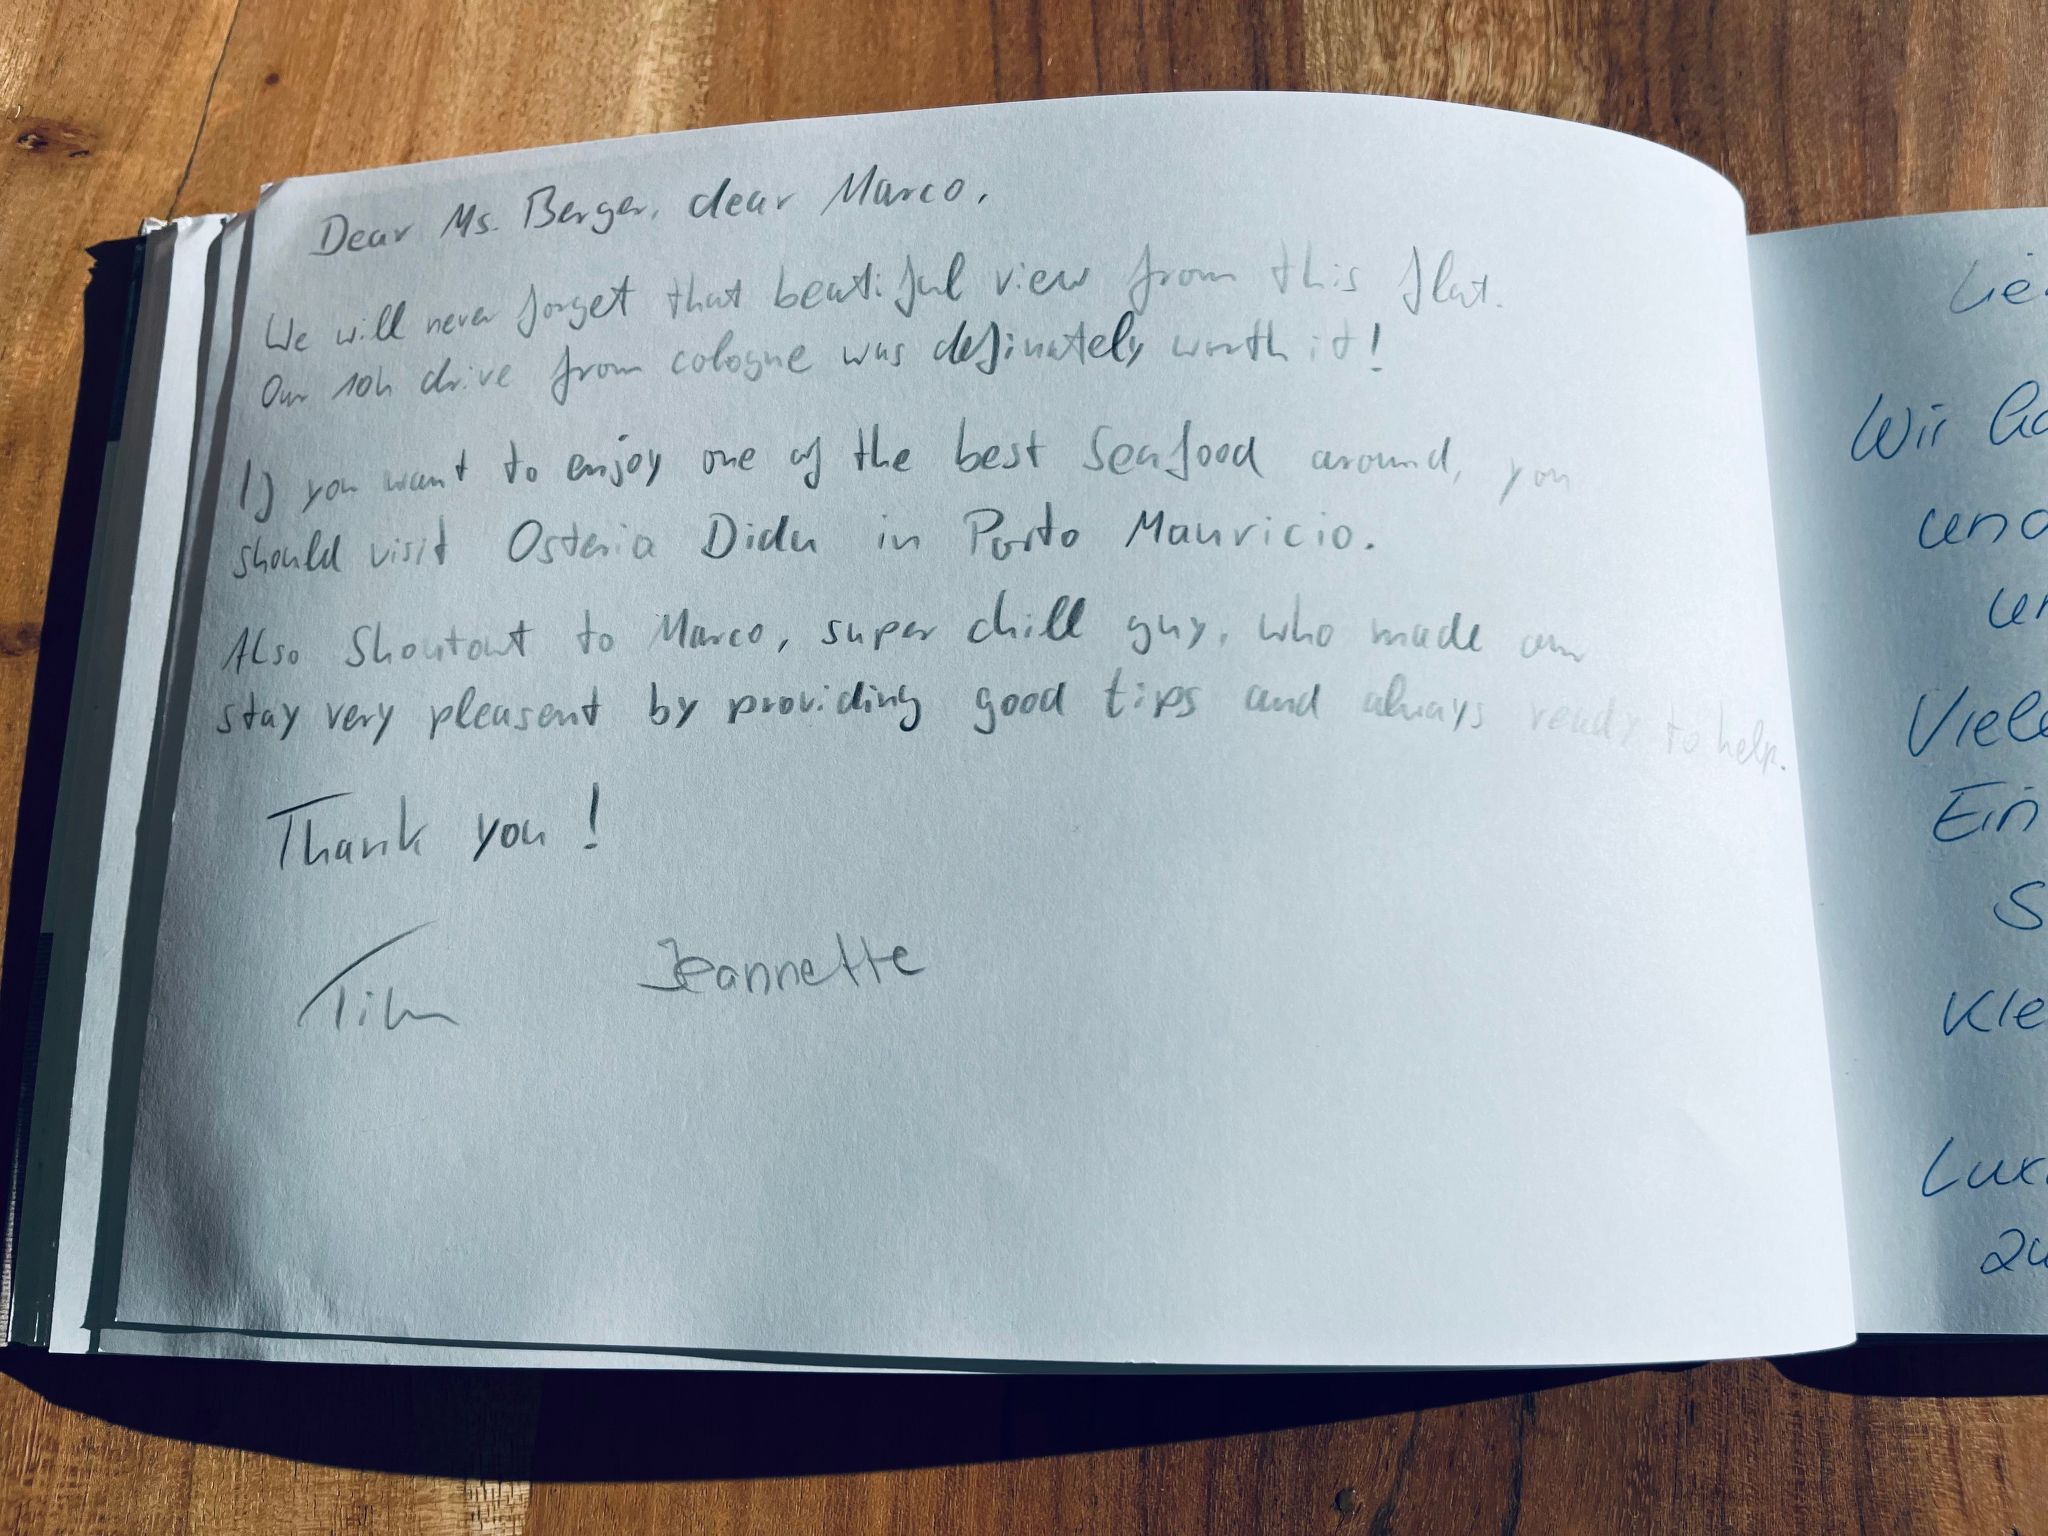 Dear Ms. Berger, dear Marco,
We will never forget that beatiful view from this flat.
Our 10h drive from cologne was definately worth it!
If you want to enjoy one of the best seafood around, you
should visit Osteria Didu in Porto Mauricio.
Also Shoutout to Marco, super chill guy, who made our
stay very pleasent by providing good tips and always ready to help.
Thank you!
Jeannette
Wir
und
Viele
Ein